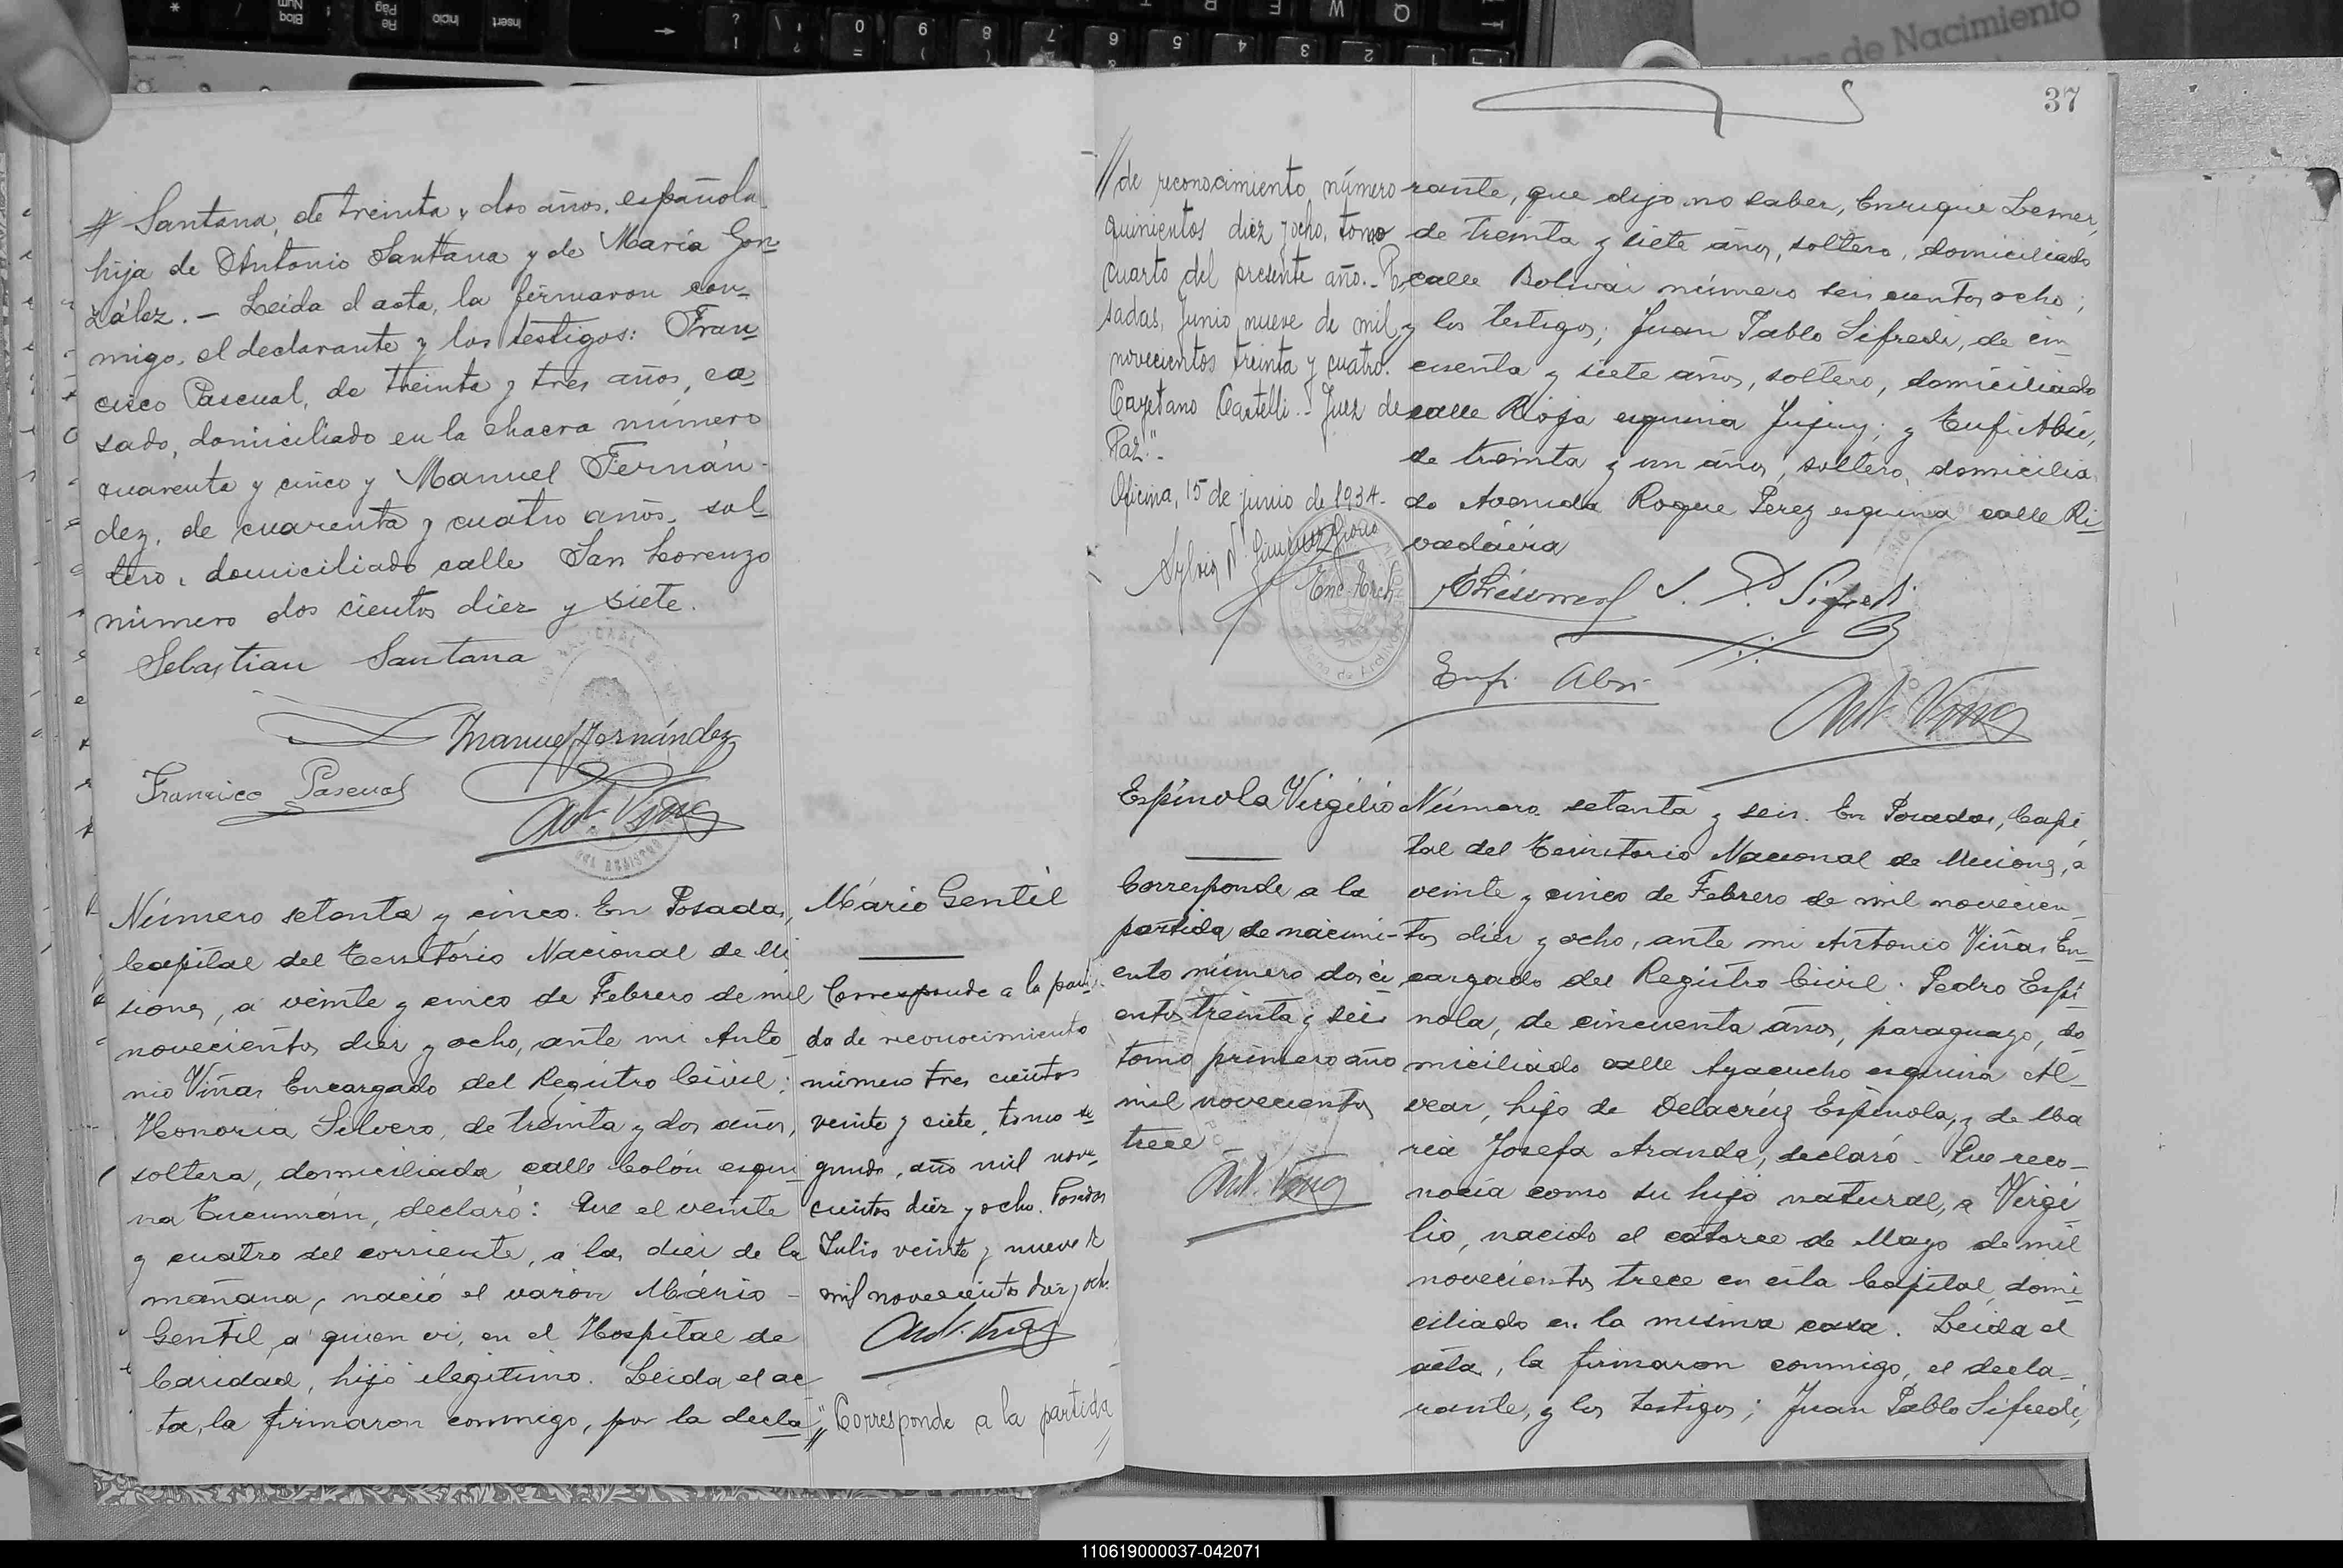 Santana, de treinta y dos años, española
hija de Antonio Santana y de María Gon
zález. — Leida el acta, la firmaron con
migo, el declarante y los testigos: Fran
cisco Pascual, de treinta y tres años, ca
sado, domiciliado en la chacra número
cuarenta y cinco y Manuel Fernán
dez, de cuarenta y cuatro años, sol
tero, domiciliado calle San Lorenzo
número dos cientos diez y siete.
Sebastian Santana
Manuel Fernández
Francisco Pascual
Ant. Viñas
Número setenta y cinco. En Posadas,
Capital del Territorio Nacional de Mi
siones, a veinte y cinco de Febrero de mil
novecientos diez y ocho, ante mi Anto
nio Viñas Encargado del Registro Civil:
Honoria Silvero, de treinta y dos años,
soltera, domiciliada calle Colón esqui
na Tucumán, declaró: Que el veinte
y cuatro del corriente, a las diez de la
mañana, nació el varón Mário
Gentil, a quien vi, en el Hospital de
Caridad, hijo ilegitimo. Leida el ac
ta, la firmaron conmigo, por la decla
Mário Gentil
Corresponde a la parti
da de reconocimiento
número tres cientos
veinte y siete, tomo se
gundo, año mil nove
cientos diez y ocho. Posadas
Julio veinte y nueve de
mil novecientos diez y ocho.
Ant. Viñas
"Corresponde a la partida
//
37
// de reconocimiento número
quinientos diez y ocho, tomo
cuarto del presente año.- Po
sadas, Junio nueve de mil
novecientos treinta y cuatro.
Cayetano Castelli.- Juez de
Paz".-
Oficina, 15 de junio de 1934.-
Enc. Arch.
rante, que dijo no saber, Enrique Lesner,
de treinta y siete años, soltero, domiciliado
calle Bolivar número seis cientos ocho;
y los testigos; Juan Pablo Sifredi, de cin
cuenta y siete años, soltero, domiciliado
calle Rioja esquina Jujuy; y Eufi Absi,
de treinta y un años, soltero, domicilia
do Avenida Roque Perez esquina calle Ri
vadavia
J. P. Sifredi
Eufi Absi
Ant. Viñas
Espínola Virgilio
Corresponde a la
partida de nacimi-
ento número dos ci
entos treinta y seis
tomo primero año
mil novecientos
trece —
Ant. Viñas
Número setenta y seis. En Posadas, Capi
tal del Territorio Nacional de Misiones, a
veinte y cinco de Febrero de mil novecien
tos diez y ocho, ante mi Antonio Viñas En
cargado del Registro Civil: Pedro Espí
nola, de cincuenta años, paraguayo, do
miciliado calle Ayacucho esquina Al
vear, hijo de Delacrúz Espínola, y de Ma
ria Josefa Aranda, declaró- Que reco-
nocía como su hijo natural, a Virgi
lio, nacido el catorce de Mayo de mil
novecientos trece en esta Capital, domi-
ciliado en la misma casa. Leida el
acta, la firmaron conmigo, el decla-
rante, y los testigos; Juan Pablo Sifredi,
110619000037-042071